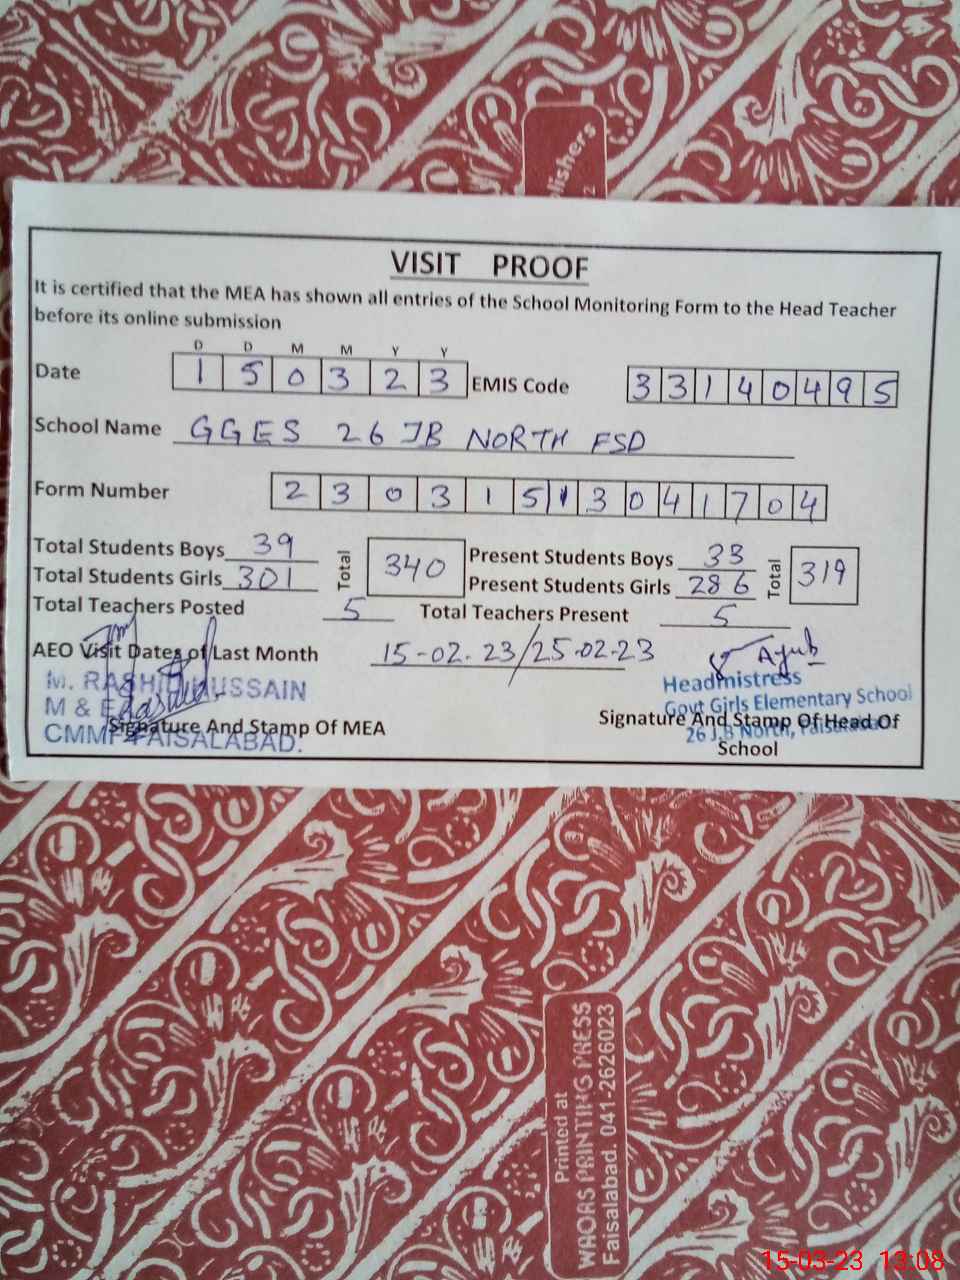 lishers
VISIT PROOF
It is certified that the MEA has shown all entries of the School Monitoring Form to the Head Teacher
before its online submission
D D M M Y Y
Date 1 5 0 3 2 3 EMIS Code 3 3 1 4 0 4 9 5
School Name GGES 26 JB NORTH FSD
Form Number 2 3 0 3 1 5 1 3 0 4 1 7 0 4
Total Students Boys 39 Total 340 Present Students Boys 33 Total 319
Total Students Girls 301 Present Students Girls 286
Total Teachers Posted 5 Total Teachers Present 5
AEO Visit Dates of Last Month 15-02.23/25-02-23
Ayub
M. RASHID HUSSAIN
M & E
CMMF FAISALABAD.
Signature And Stamp Of MEA
Headmistress
Govt Girls Elementary School
26 J.B North, Faisalabad
Signature And Stamp Of Head Of
School
Printed at
WAORS PRINTING PRESS
Faisalabad. 041-2626023
15-03-23 13:08